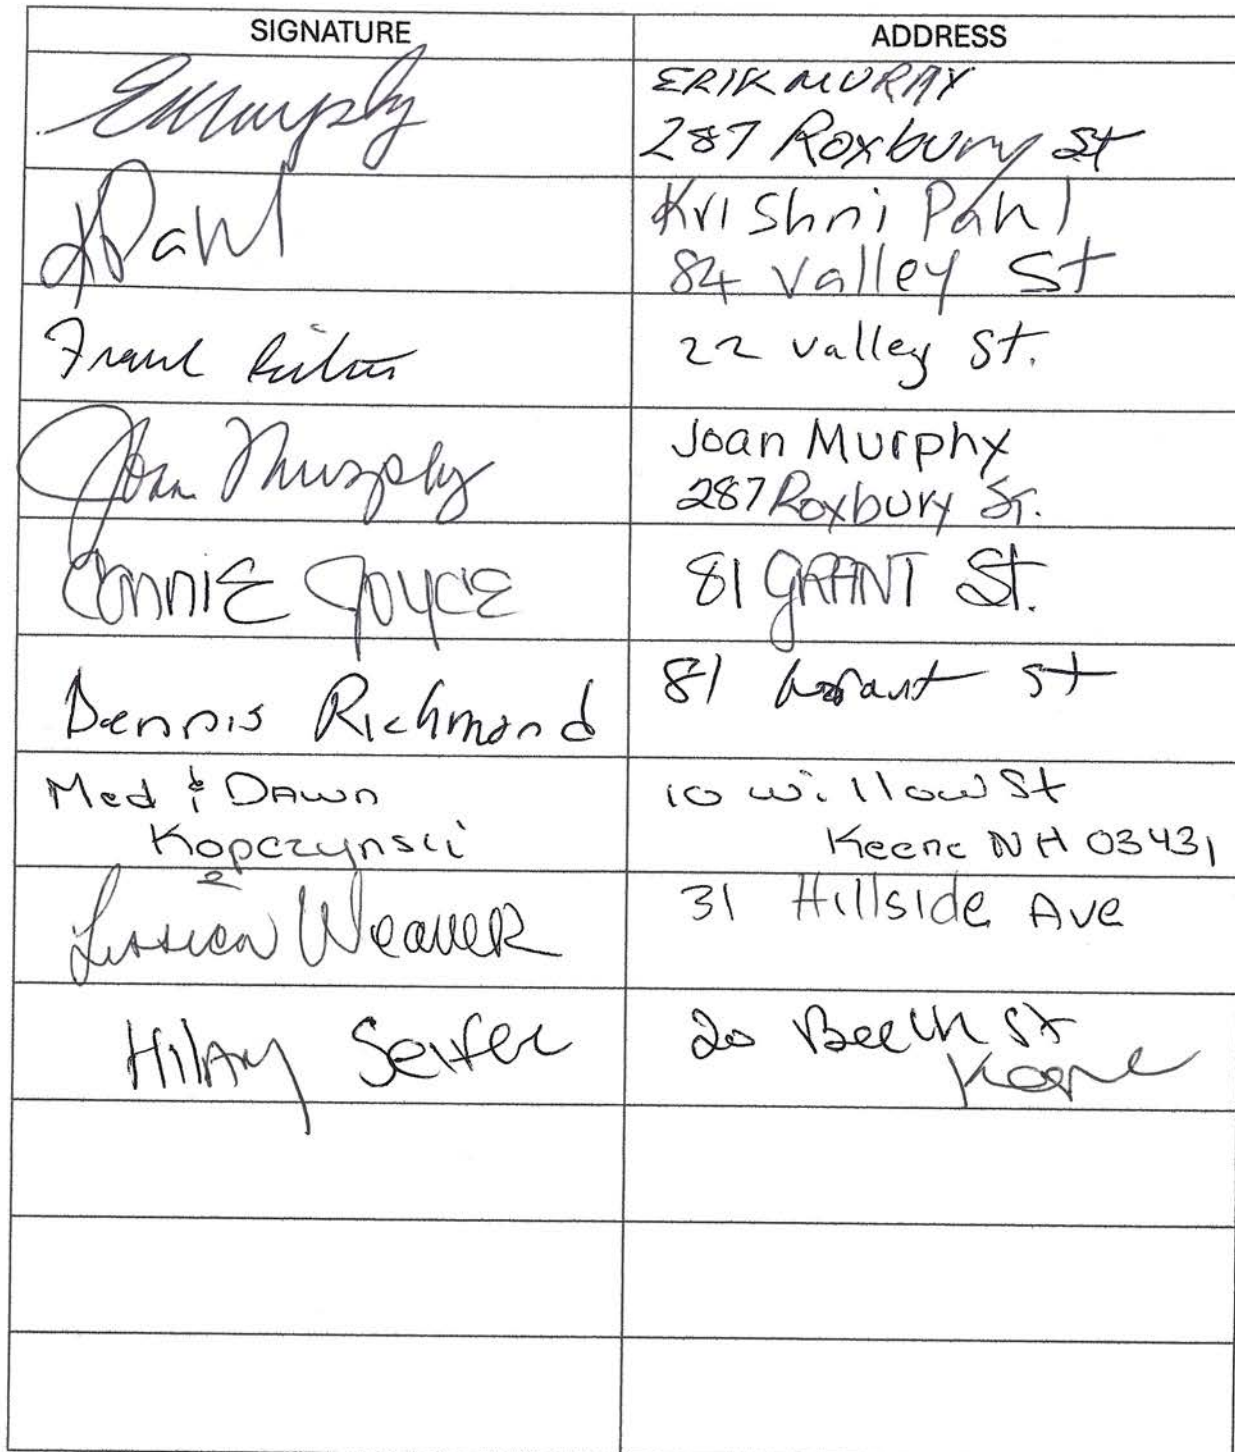 SIGNATURE ADDRESS
EMurphy ERIK MURRAY
287 Roxbury St
KPahl Krishni Pahl
84 Valley St
Frank 22 Valley St.
Joan Murphy Joan Murphy
287 Roxbury St.
Connie Joyce 81 GRANT St.
Dennis Richmond 81 Grant St
Med & Dawn 10 Willow St
Kopczynski Keene NH 03431
Jessica Weaver 31 Hillside Ave
Hilary Seifer 20 Beech St
Keene